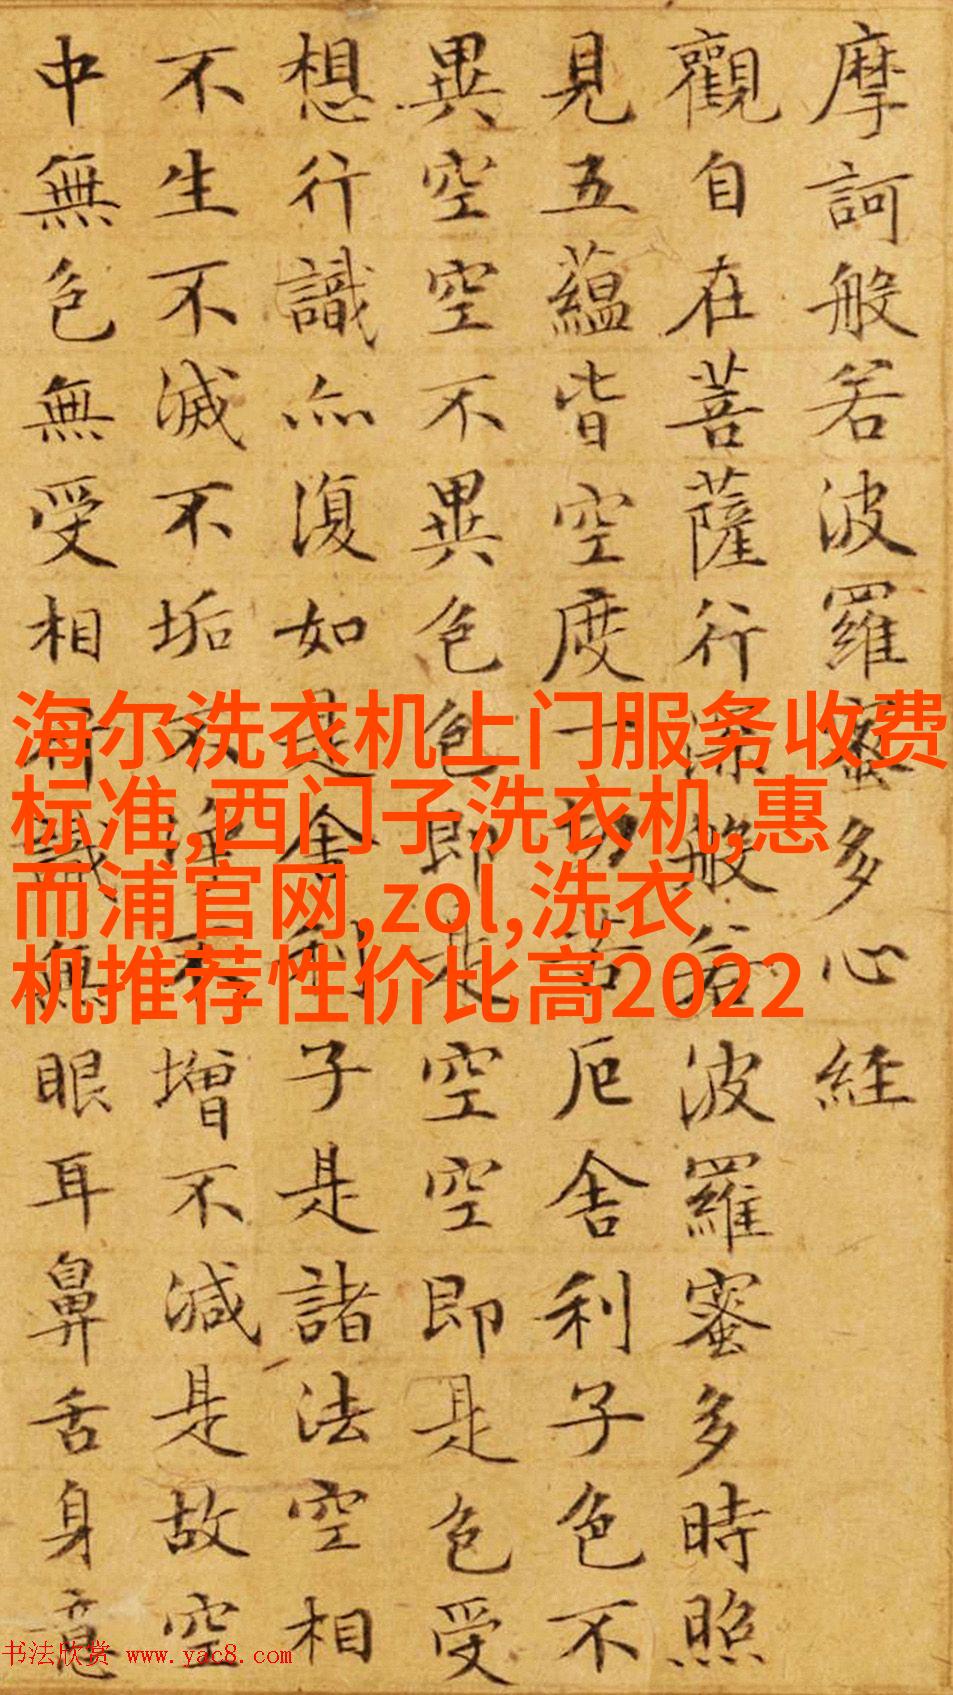 摩訶般若波羅蜜多心經
觀自在菩薩行深般若波羅蜜多時照
見五蘊皆空度一切苦厄舍利子色不
異空空不異色色即是空空即是色受
想行識亦復如是舍利子是諸法空相
不生不滅不垢不淨不增不減是故空
中無色無受相行識無眼耳鼻舌身意
海尔洗衣机上门服务收费
标准,西门子洗衣机,惠
而浦官网,zol,洗衣
机推荐性价比高2022
书法欣赏 www.yac8.com